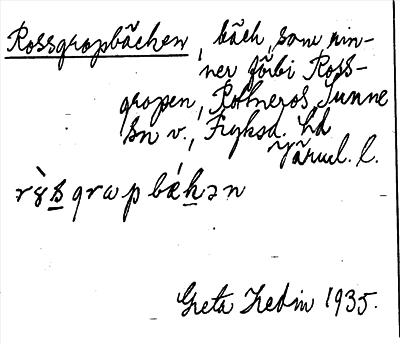 Rossgropbäcken, bäck, som rin-
ner förbi Ross-
gropen, Rotneros Sunne
sn v., Fryksd. hd
Värml. l.
Greta Hedin 1935.